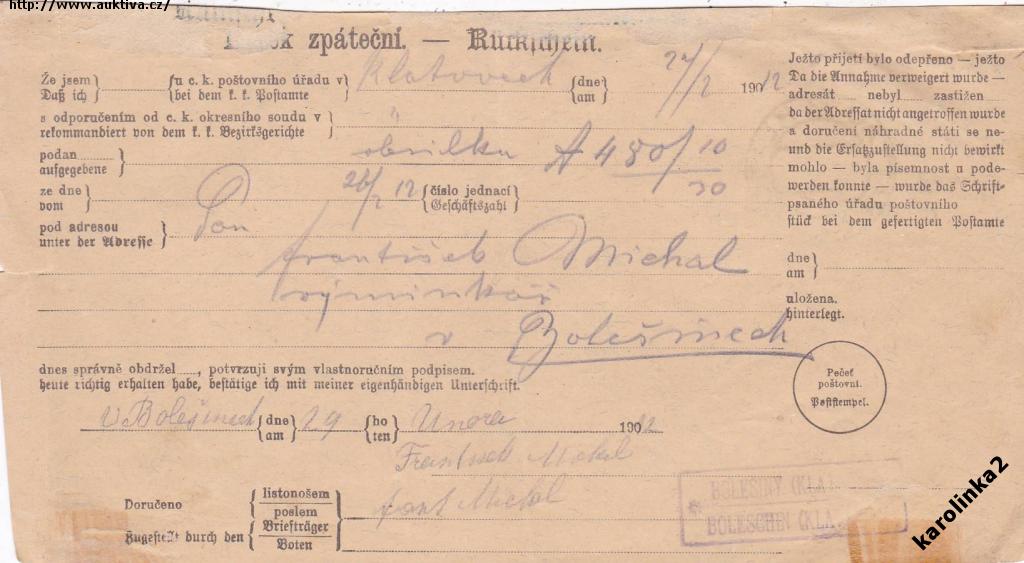 http://www.auktiva.cz/
zpáteční. — Rückschein.
Že jsem u c. k. poštovního úřadu v Klatovech dne 27/2 1912
Daß ich bei dem k. k. Postamte am
s odporučením od c. k. okresního soudu v "
rekommandiert von dem k. k. Bezirksgerichte
podan obsílku A 480/10
aufgegebene 30
ze dne 26/2 12 číslo jednací
vom Geschäftszahl
pod adresou Pan
unter der Adresse
František Michal
výminkář
v Bolešinech
dnes správně obdržel, potvrzuji svým vlastnoručním podpisem.
heute richtig erhalten habe, bestätige ich mit meiner eigenhändigen Unterschrift.
V Bolešinech dne 29 ho Unora 1902
am ten
František Michal
Doručeno listonošem
poslem
Zugestellt durch den Briefträger
Boten
Michal
Ježto přijetí bylo odepřeno — ježto
Da die Annahme verweigert wurde —
adresát nebyl zastižen
da der Adressat nicht angetroffen wurde
a doručení náhradné státi se ne-
und die Ersatzzustellung nicht bewirkt
mohlo — byla písemnost u pode-
werden konnte — wurde das Schrift-
psaného úřadu poštovního
stück bei dem gefertigten Postamte
dne
am
uložena.
hinterlegt.
Pečeť
poštovní.
Poststempel.
BOLEŠINY (KLA
BOLESCHIN (KLA
karolinka2